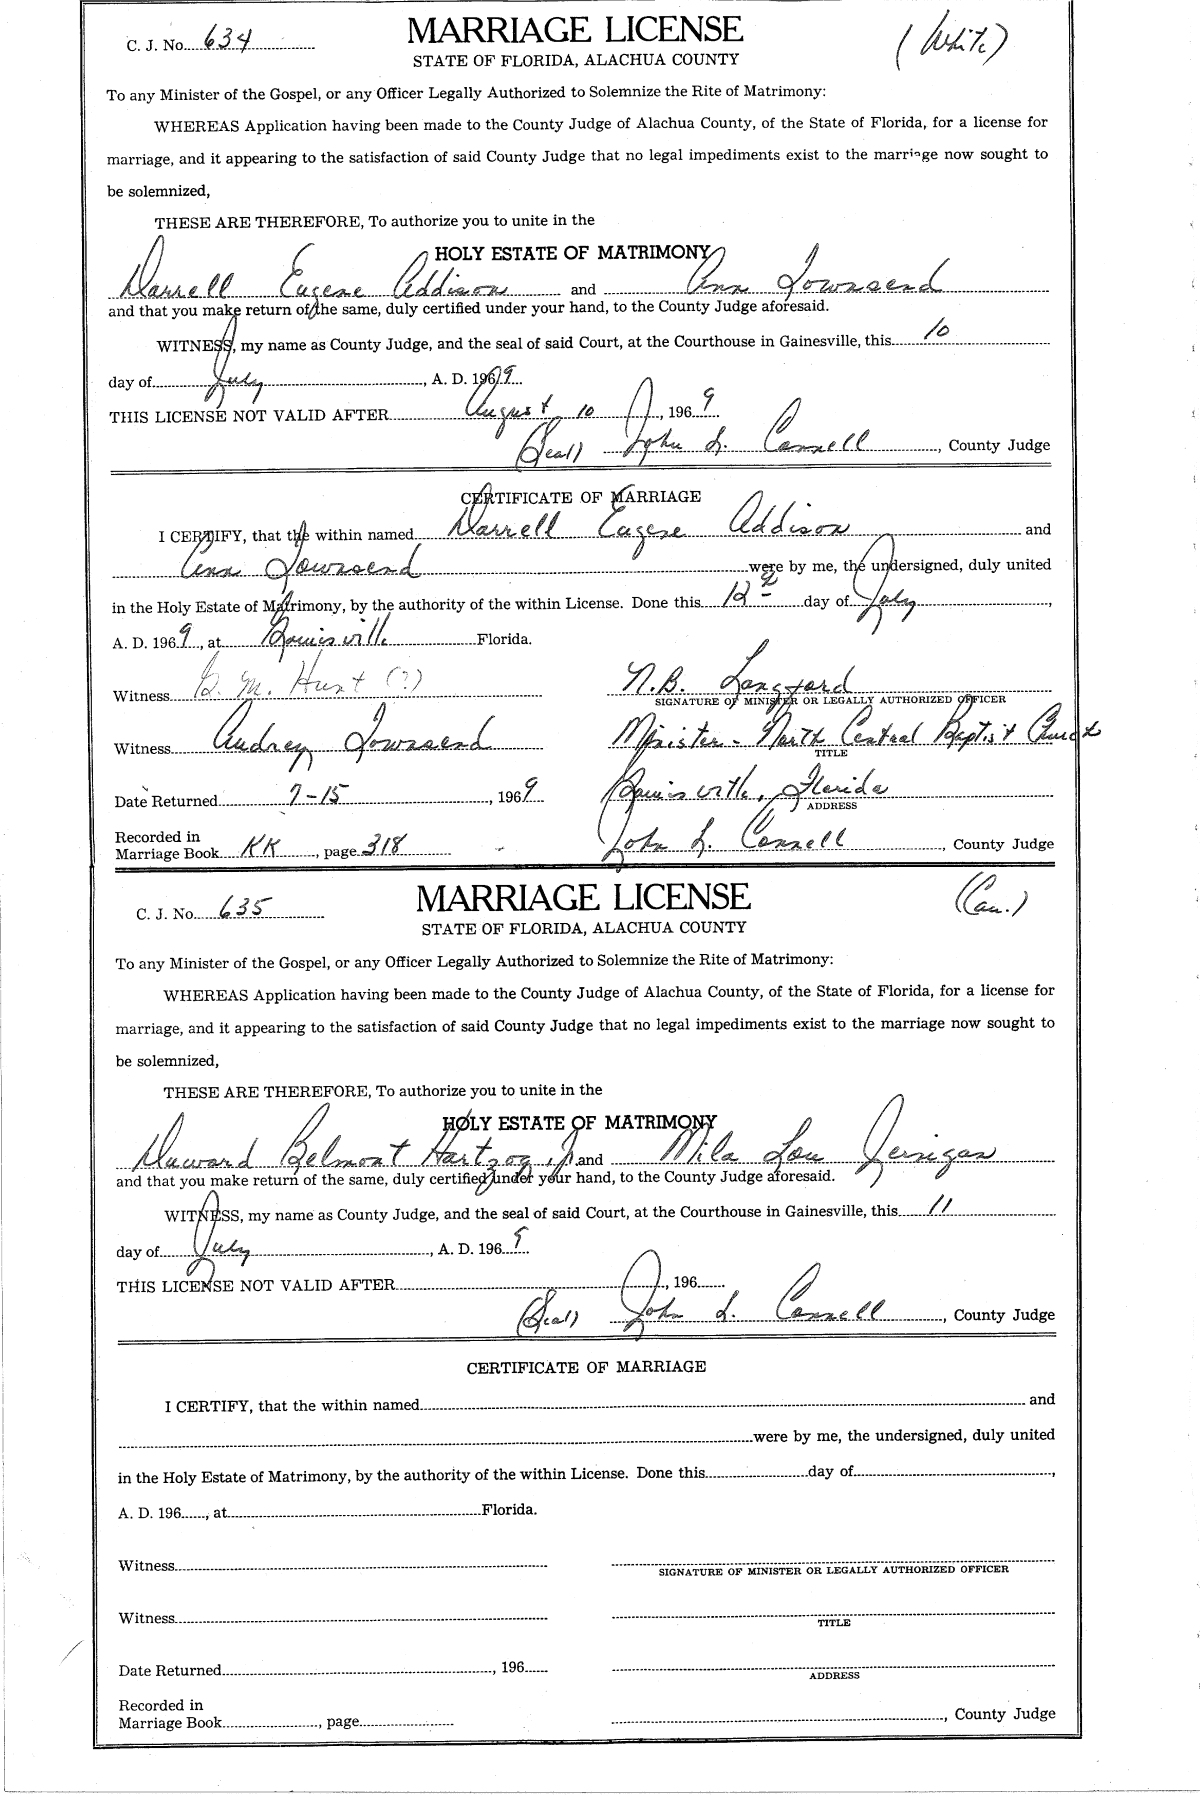 C. J. No. 634
MARRIAGE LICENSE
(White)
STATE OF FLORIDA, ALACHUA COUNTY
To any Minister of the Gospel, or any Officer Legally Authorized to Solemnize the Rite of Matrimony:
WHEREAS Application having been made to the County Judge of Alachua County, of the State of Florida, for a license for
marriage, and it appearing to the satisfaction of said County Judge that no legal impediments exist to the marriage now sought to
be solemnized,
THESE ARE THEREFORE, To authorize you to unite in the
HOLY ESTATE OF MATRIMONY
Darrell Eugene Addison and Ann Townsend
and that you make return of the same, duly certified under your hand, to the County Judge aforesaid.
WITNESS, my name as County Judge, and the seal of said Court, at the Courthouse in Gainesville, this 10
day of July, A. D. 1969
THIS LICENSE NOT VALID AFTER August 10, 1969
(Seal) John L. Connell, County Judge
CERTIFICATE OF MARRIAGE
I CERTIFY, that the within named Darrell Eugene Addison and
Ann Townsend were by me, the undersigned, duly united
in the Holy Estate of Matrimony, by the authority of the within License. Done this 12 day of July,
A. D. 1969, at Gainesville Florida.
Witness G. M. Hunt (?)
N.B. Langford
SIGNATURE OF MINISTER OR LEGALLY AUTHORIZED OFFICER
Witness Audrey Townsend
Minister - North Central Baptist Church
TITLE
Date Returned 7-15, 1969
Gainesville, Florida
ADDRESS
Recorded in
Marriage Book KK, page 318
John L. Connell, County Judge
C. J. No. 635
MARRIAGE LICENSE
(Cau.)
STATE OF FLORIDA, ALACHUA COUNTY
To any Minister of the Gospel, or any Officer Legally Authorized to Solemnize the Rite of Matrimony:
WHEREAS Application having been made to the County Judge of Alachua County, of the State of Florida, for a license for
marriage, and it appearing to the satisfaction of said County Judge that no legal impediments exist to the marriage now sought to
be solemnized,
THESE ARE THEREFORE, To authorize you to unite in the
HOLY ESTATE OF MATRIMONY
Duward Belmont Hartzog, Jr. and Mila Lou Jernigan
and that you make return of the same, duly certified under your hand, to the County Judge aforesaid.
WITNESS, my name as County Judge, and the seal of said Court, at the Courthouse in Gainesville, this 11
day of July, A. D. 1969
THIS LICENSE NOT VALID AFTER, 196
(Seal) John L. Connell, County Judge
CERTIFICATE OF MARRIAGE
I CERTIFY, that the within named and
were by me, the undersigned, duly united
in the Holy Estate of Matrimony, by the authority of the within License. Done this day of,
A. D. 196, at Florida.
Witness
SIGNATURE OF MINISTER OR LEGALLY AUTHORIZED OFFICER
Witness
TITLE
Date Returned, 196
ADDRESS
Recorded in
Marriage Book, page
, County Judge